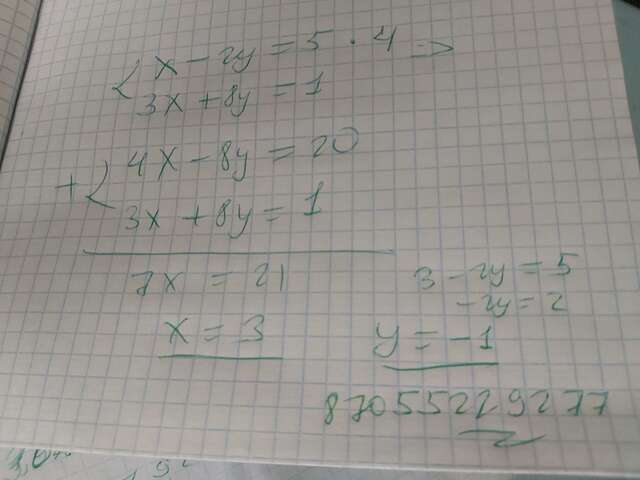 x - 2y = 5 · 4 =>
3x + 8y = 1
4x - 8y = 20
+
3x + 8y = 1
7x = 21
3 - 2y = 5
-2y = 2
x = 3
y = -1
87055229277